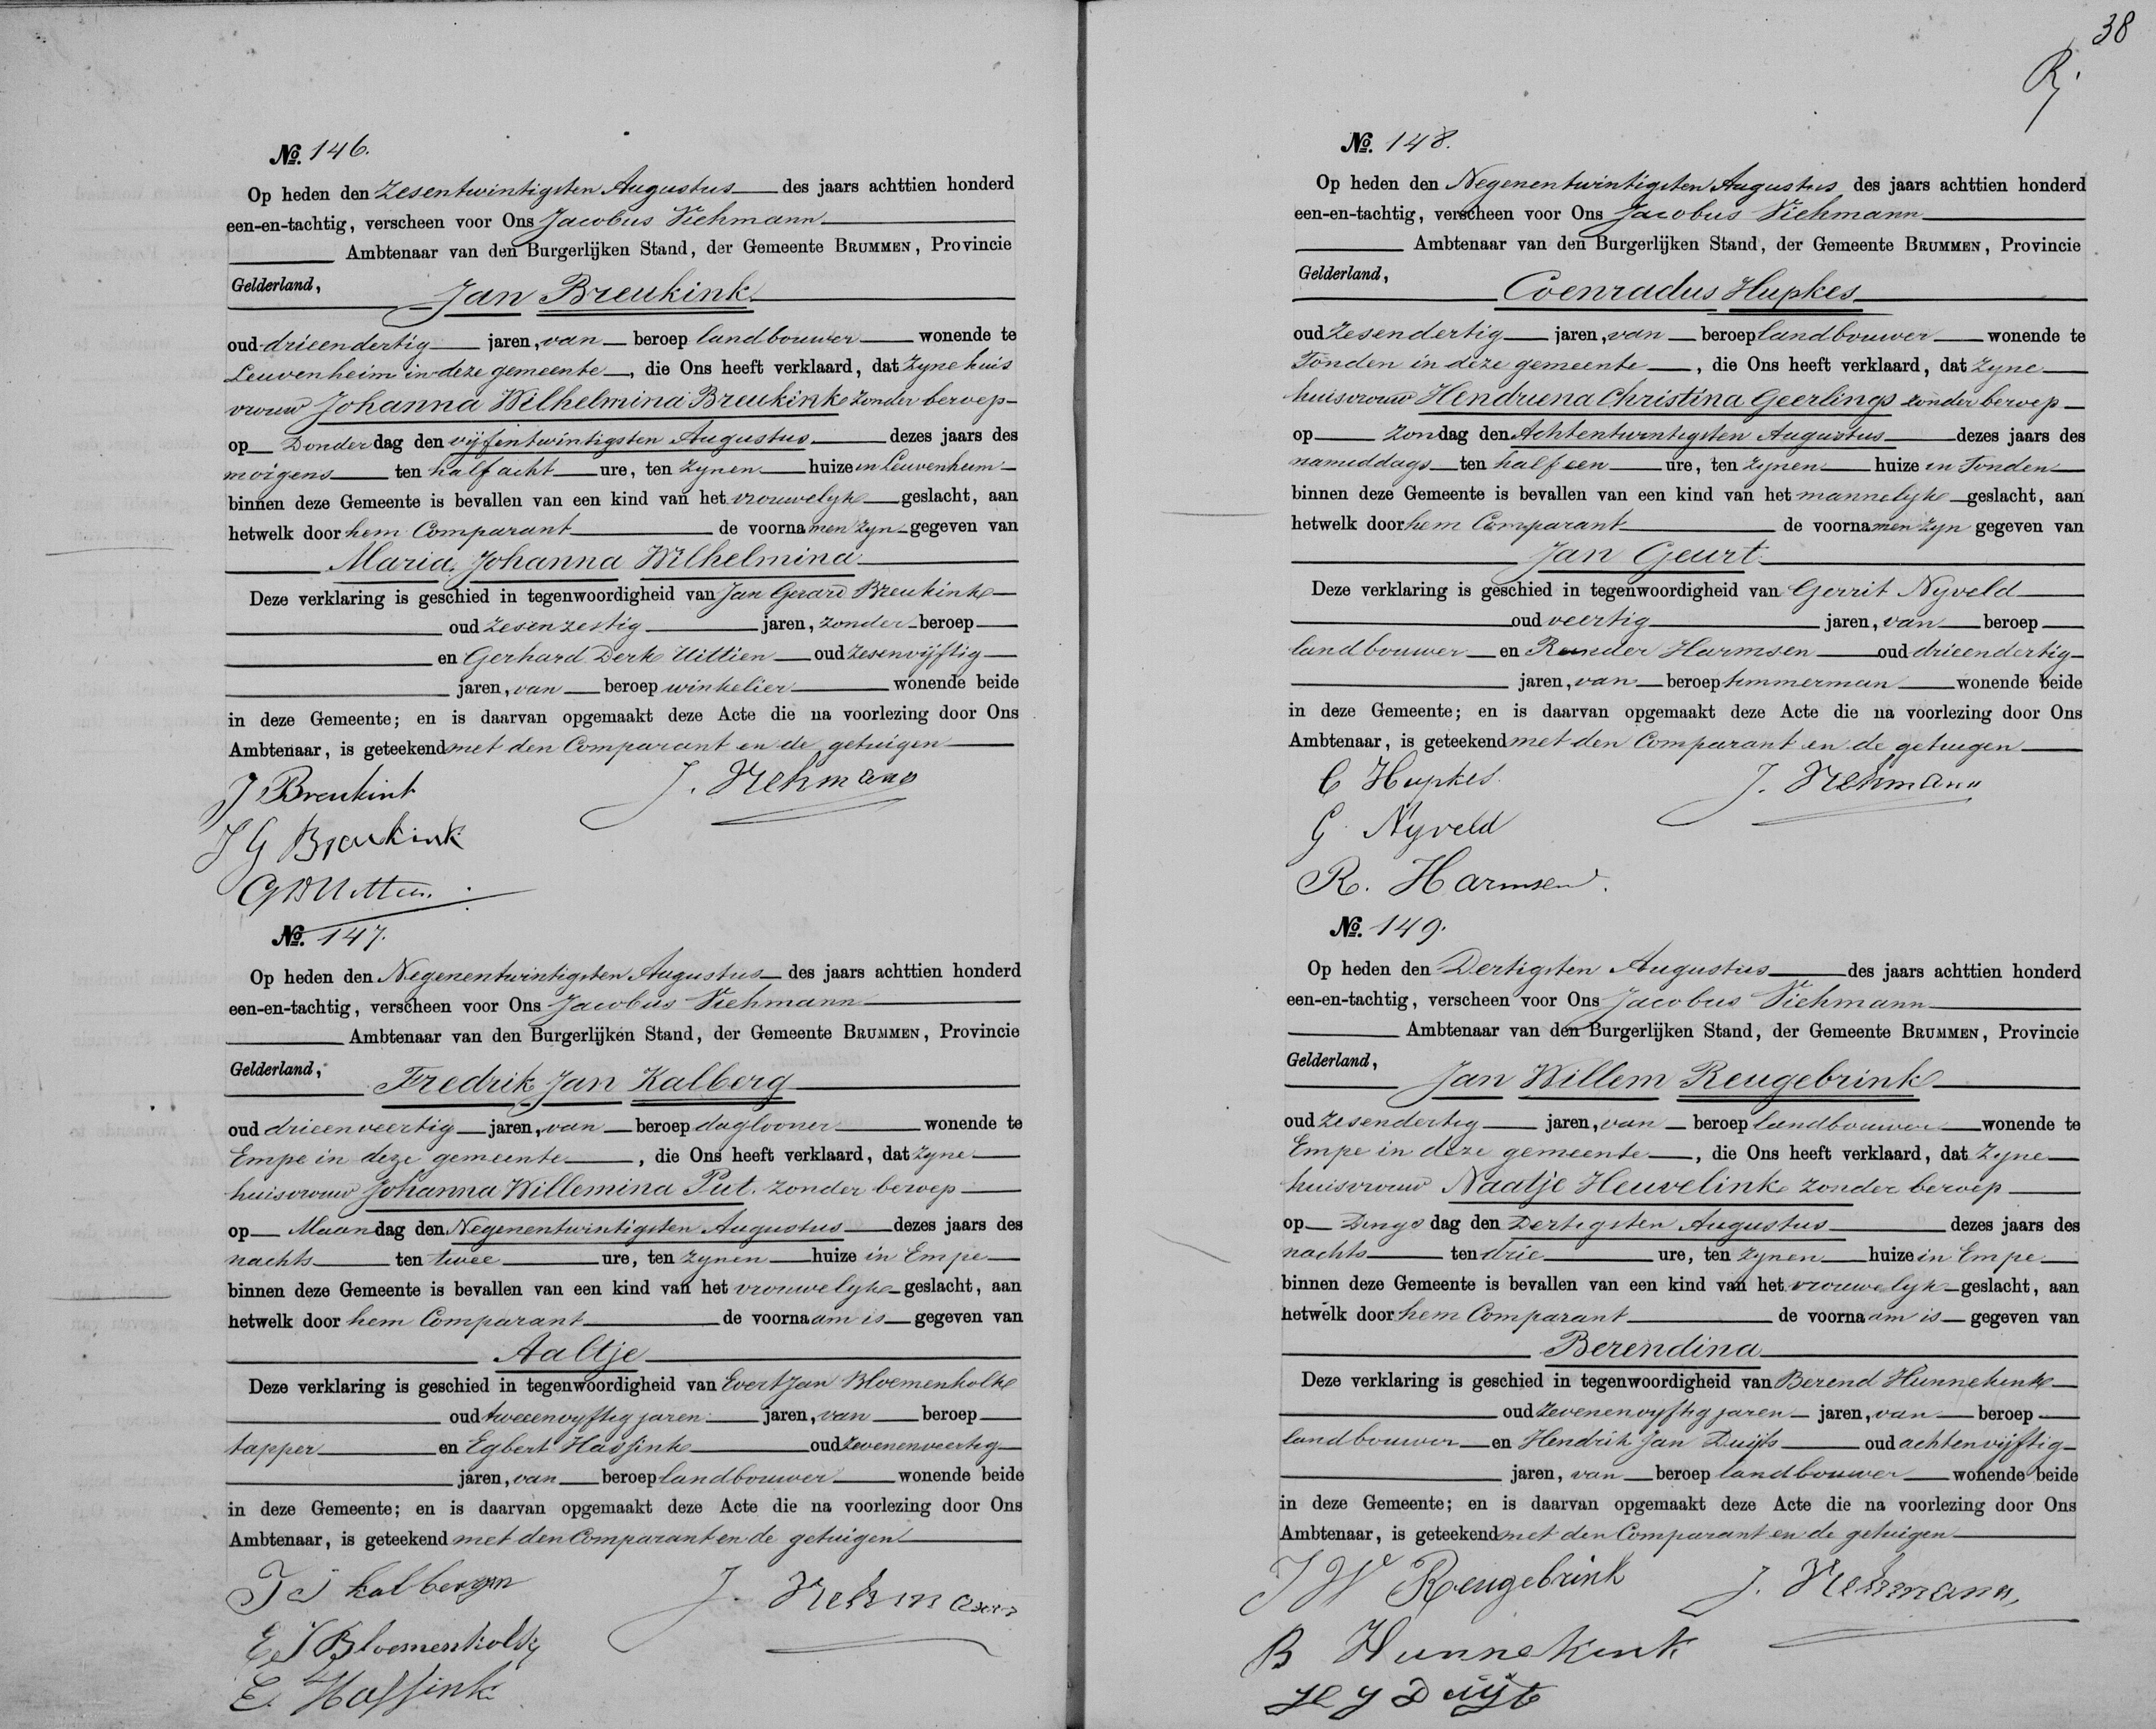 No. 146.
Op heden den Zesentwintigsten Augustus des jaars achttien honderd
een-en-tachtig, verscheen voor Ons Jacobus Viehmann
Ambtenaar van den Burgerlijken Stand, der Gemeente BRUMMEN, Provincie
Gelderland,
Jan Breukink
oud drieendertig jaren, van beroep landbouwer wonende te
Leuvenheim in deze gemeente, die Ons heeft verklaard, dat zyne huis
vrouw Johanna Wilhelmina Breukink zonder beroep
op Donderdag den vijfentwintigsten Augustus dezes jaars des
morgens ten half acht ure, ten zynen huize in Leuvenheim
binnen deze Gemeente is bevallen van een kind van het vrouwelyk geslacht, aan
hetwelk door hem Comparant de voornamen zyn gegeven van
Maria Johanna Wilhelmina
Deze verklaring is geschied in tegenwoordigheid van Jan Gerard Breukink
oud zesenzestig jaren, zonder beroep
en Gerhard Derk Uittien oud zesenvijftig
jaren, van beroep winkelier wonende beide
in deze Gemeente; en is daarvan opgemaakt deze Acte die na voorlezing door Ons
Ambtenaar, is geteekend met den Comparant en de getuigen
J Breukink J. Viehmann
J G Breukink
G D Uittien.
No. 147.
Op heden den Negenentwintigsten Augustus des jaars achttien honderd
een-en-tachtig, verscheen voor Ons Jacobus Viehmann
Ambtenaar van den Burgerlijken Stand, der Gemeente BRUMMEN, Provincie
Gelderland,
Fredrik Jan Kalberg
oud drieenveertig jaren, van beroep daglooner wonende te
Empe in deze gemeente, die Ons heeft verklaard, dat zyne
huisvrouw Johanna Willemina Put. zonder beroep
op Maandag den Negenentwintigsten Augustus dezes jaars des
nachts ten twee ure, ten zynen huize in Empe
binnen deze Gemeente is bevallen van een kind van het vrouwelyk geslacht, aan
hetwelk door hem Comparant de voornaam is gegeven van
Aaltje
Deze verklaring is geschied in tegenwoordigheid van Evert Jan Bloemenkolk
oud tweeenvyftig jaren jaren, van beroep
tapper en Egbert Hassink oud zevenenveertig
jaren, van beroep landbouwer wonende beide
in deze Gemeente; en is daarvan opgemaakt deze Acte die na voorlezing door Ons
Ambtenaar, is geteekend met den Comparant en de getuigen
J. Viehmann
E J Bloemenkolk
E. Hassink
38
No. 148.
Op heden den Negenentwintigsten Augustus des jaars achttien honderd
een-en-tachtig, verscheen voor Ons Jacobus Viehmann
Ambtenaar van den Burgerlijken Stand, der Gemeente BRUMMEN, Provincie
Gelderland,
Coenradus Hupkes
oud zesendertig jaren, van beroep landbouwer wonende te
Tonden in deze gemeente, die Ons heeft verklaard, dat zyne
huisvrouw Hendriena Christina Geerlings zonder beroep
op Zondag den Achtentwintigsten Augustus dezes jaars des
namiddags ten half een ure, ten zynen huize in Tonden
binnen deze Gemeente is bevallen van een kind van het mannelyk geslacht, aan
hetwelk door hem Comparant de voornamen zyn gegeven van
Jan Geurt.
Deze verklaring is geschied in tegenwoordigheid van Gerrit Nyveld
oud veertig jaren, van beroep
landbouwer en Reinder Harmsen oud drieendertig
jaren, van beroep timmerman wonende beide
in deze Gemeente; en is daarvan opgemaakt deze Acte die na voorlezing door Ons
Ambtenaar, is geteekend met den Comparant en de getuigen
C Hupkes. J. Viehmann
G Nyveld
R. Harmsen.
No. 149.
Op heden den Dertigsten Augustus des jaars achttien honderd
een-en-tachtig, verscheen voor Ons Jacobus Viehmann
Ambtenaar van den Burgerlijken Stand, der Gemeente BRUMMEN, Provincie
Gelderland,
Jan Willem Reugebrink
oud zesendertig jaren, van beroep landbouwer wonende te
Empe in deze gemeente, die Ons heeft verklaard, dat zyne
huisvrouw Naatje Heuvelink zonder beroep
op Dingsdag den Dertigsten Augustus dezes jaars des
nachts ten drie ure, ten zynen huize in Empe
binnen deze Gemeente is bevallen van een kind van het vrouwelyk geslacht, aan
hetwelk door hem Comparant de voornaam is gegeven van
Berendina
Deze verklaring is geschied in tegenwoordigheid van Berend Hunnekink
oud zevenenvyftig jaren jaren, van beroep
landbouwer en Hendrik Jan Duijts oud achtenvijftig
jaren, van beroep landbouwer wonende beide
in deze Gemeente; en is daarvan opgemaakt deze Acte die na voorlezing door Ons
Ambtenaar, is geteekend met den Comparant en de getuigen
J W Reugebrink J. Viehmann
B Hunnekink
H J Duijts